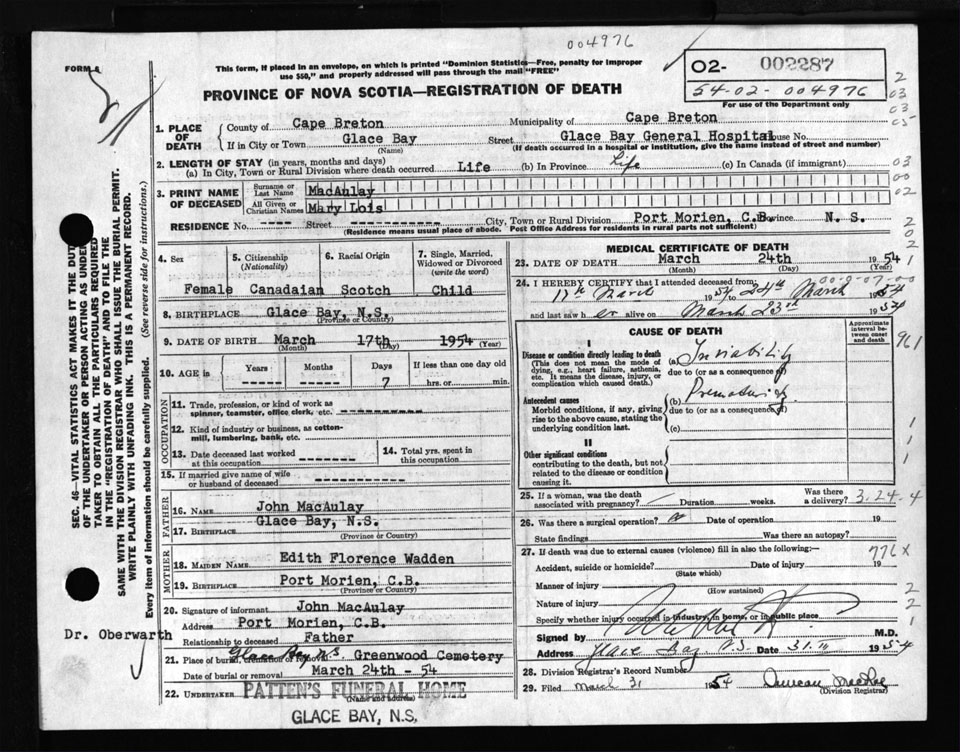 004976
FORM 4
This form, if placed in an envelope, on which is printed "Dominion Statistics—Free, penalty for improper
use $50," and properly addressed will pass through the mail "FREE"
PROVINCE OF NOVA SCOTIA—REGISTRATION OF DEATH
02- 002287
54-02-004976
For use of the Department only
2
03
03
05
SEC. 46—VITAL STATISTICS ACT MAKES IT THE DUTY
OF THE UNDERTAKER OR PERSON ACTING AS UNDER-
TAKER TO OBTAIN ALL THE PARTICULARS REQUIRED
IN THE "REGISTRATION OF DEATH" AND TO FILE THE
SAME WITH THE DIVISION REGISTRAR WHO SHALL ISSUE THE BURIAL PERMIT.
WRITE PLAINLY WITH UNFADING INK. THIS IS A PERMANENT RECORD.
Every item of information should be carefully supplied. (See reverse side for instructions.)
1. PLACE OF DEATH
County of Cape Breton Municipality of Cape Breton
If in City or Town Glace Bay Street Glace Bay General Hospital House No.
(Name) (If death occurred in a hospital or institution, give the name instead of street and number)
2. LENGTH OF STAY (in years, months and days)
(a) In City, Town or Rural Division where death occurred Life (b) In Province Life (c) In Canada (if immigrant) 03
00
3. PRINT NAME OF DECEASED
Surname or Last Name MacAulay 02
All Given or Christian Names Mary Lois
RESIDENCE No. ---- Street ---------- City, Town or Rural Division Port Morien, C.B. Province N. S. 2
(Residence means usual place of abode. Post Office Address for residents in rural parts not sufficient) 02
4. Sex
5. Citizenship (Nationality)
6. Racial Origin
7. Single, Married, Widowed or Divorced (write the word)
Female Canadaian Scotch Child
8. BIRTHPLACE Glace Bay, N.S.
(Province or Country)
9. DATE OF BIRTH March 17th 1954
(Month) (Day) (Year)
10. AGE in Years Months Days If less than one day old
----- ----- 7 hrs. or min.
OCCUPATION
11. Trade, profession, or kind of work as
spinner, teamster, office clerk, etc. ----------
12. Kind of industry or business, as cotton-
mill, lumbering, bank, etc.
13. Date deceased last worked
at this occupation --------
14. Total yrs. spent in
this occupation
15. If married give name of wife
or husband of deceased ---------
FATHER
16. Name John MacAulay
17. Birthplace Glace Bay, N.S.
(Province or Country)
MOTHER
18. Maiden Name Edith Florence Wadden
19. Birthplace Port Morien, C.B.
(Province or Country)
20. Signature of informant John MacAulay
Address Port Morien, C.B.
Relationship to deceased Father
Dr. Oberwarth
21. Place of burial, cremation or removal Glace Bay N.S. Greenwood Cemetery
Date of burial or removal March 24th - 54
22. Undertaker PATTEN'S FUNERAL HOME
(Name and address)
GLACE BAY, N.S,
MEDICAL CERTIFICATE OF DEATH
23. DATE OF DEATH March 24th 1954 1
(Month) (Day) (Year)
24. I HEREBY CERTIFY that I attended deceased from
17th March 1954 to 24th March 1954
and last saw h er alive on March 23rd 1954
CAUSE OF DEATH
Approximate interval between onset and death
961
I
Disease or condition directly leading to death
(This does not mean the mode of
dying, e.g., heart failure, asthenia,
etc. It means the disease, injury, or
complication which caused death.)
(a) Inviability
due to (or as a consequence of)
Antecedent causes
Morbid conditions, if any, giving
rise to the above cause, stating the
underlying condition last.
(b) Prematurity
due to (or as a consequence of)
(c)
II
Other significant conditions
contributing to the death, but not
related to the disease or condition
causing it.
1
1
1
25. If a woman, was the death
associated with pregnancy? Duration weeks. Was there a delivery? 3.24.4
26. Was there a surgical operation? Date of operation 19
State findings Was there an autopsy?
27. If death was due to external causes (violence) fill in also the following:— 776X
Accident, suicide or homicide? Date of injury 19
(State which)
Manner of injury
(How sustained)
2
Nature of injury 2
Specify whether injury occurred in industry, in home, or in public place 1
Signed by M.D.
Address Glace Bay N.S. Date 31.III 1954
28. Division Registrar's Record Number
29. Filed March 31 1954 Duncan MacRae
(Division Registrar)